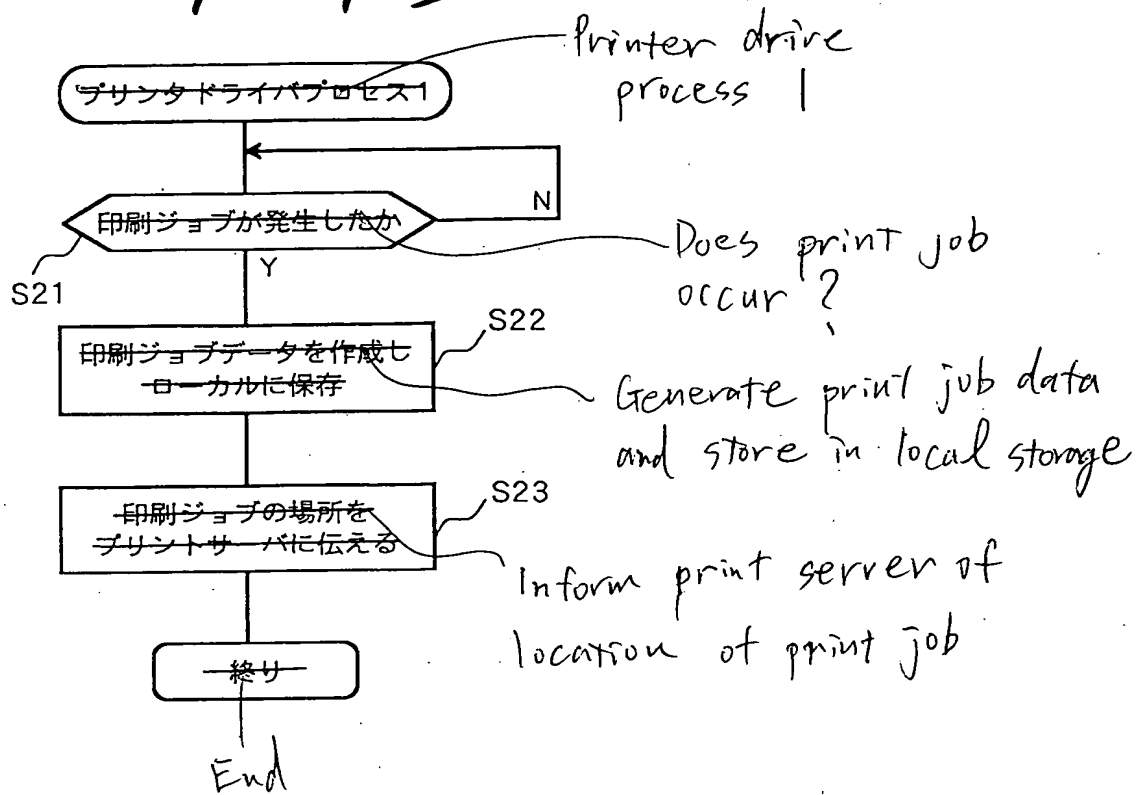 Printer drive
process 1
プリンタドライバプロセス1
N
印刷ジョブが発生したか
Does print job
occur?
Y
S21
S22
印刷ジョブデータを作成し
ローカルに保存
Generate print job data
and store in local storage
S23
印刷ジョブの場所を
プリントサーバに伝える
Inform print server of
location of print job
終り
End